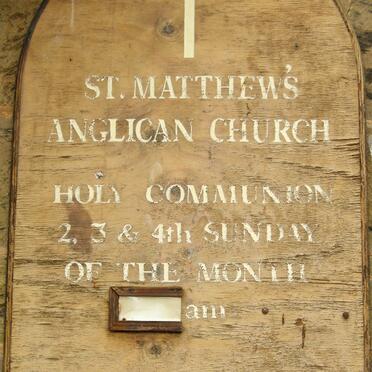 ST. MATTHEW'S
ANGLICAN CHURCH
HOLY COMMUNION
2, 3 & 4th SUNDAY
OF THE MONTH
am